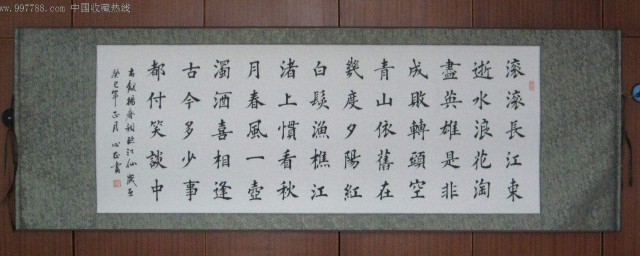 www.997788.com 中国收藏热线
滚滚長江東
逝水浪花淘
盡英雄是非
成敗轉頭空
青山依舊在
幾度夕陽紅
白髮漁樵江
渚上慣看秋
月春風一壺
濁酒喜相逢
古今多少事
都付笑談中
錄楊慎詞臨江仙歲在
癸巳年正月